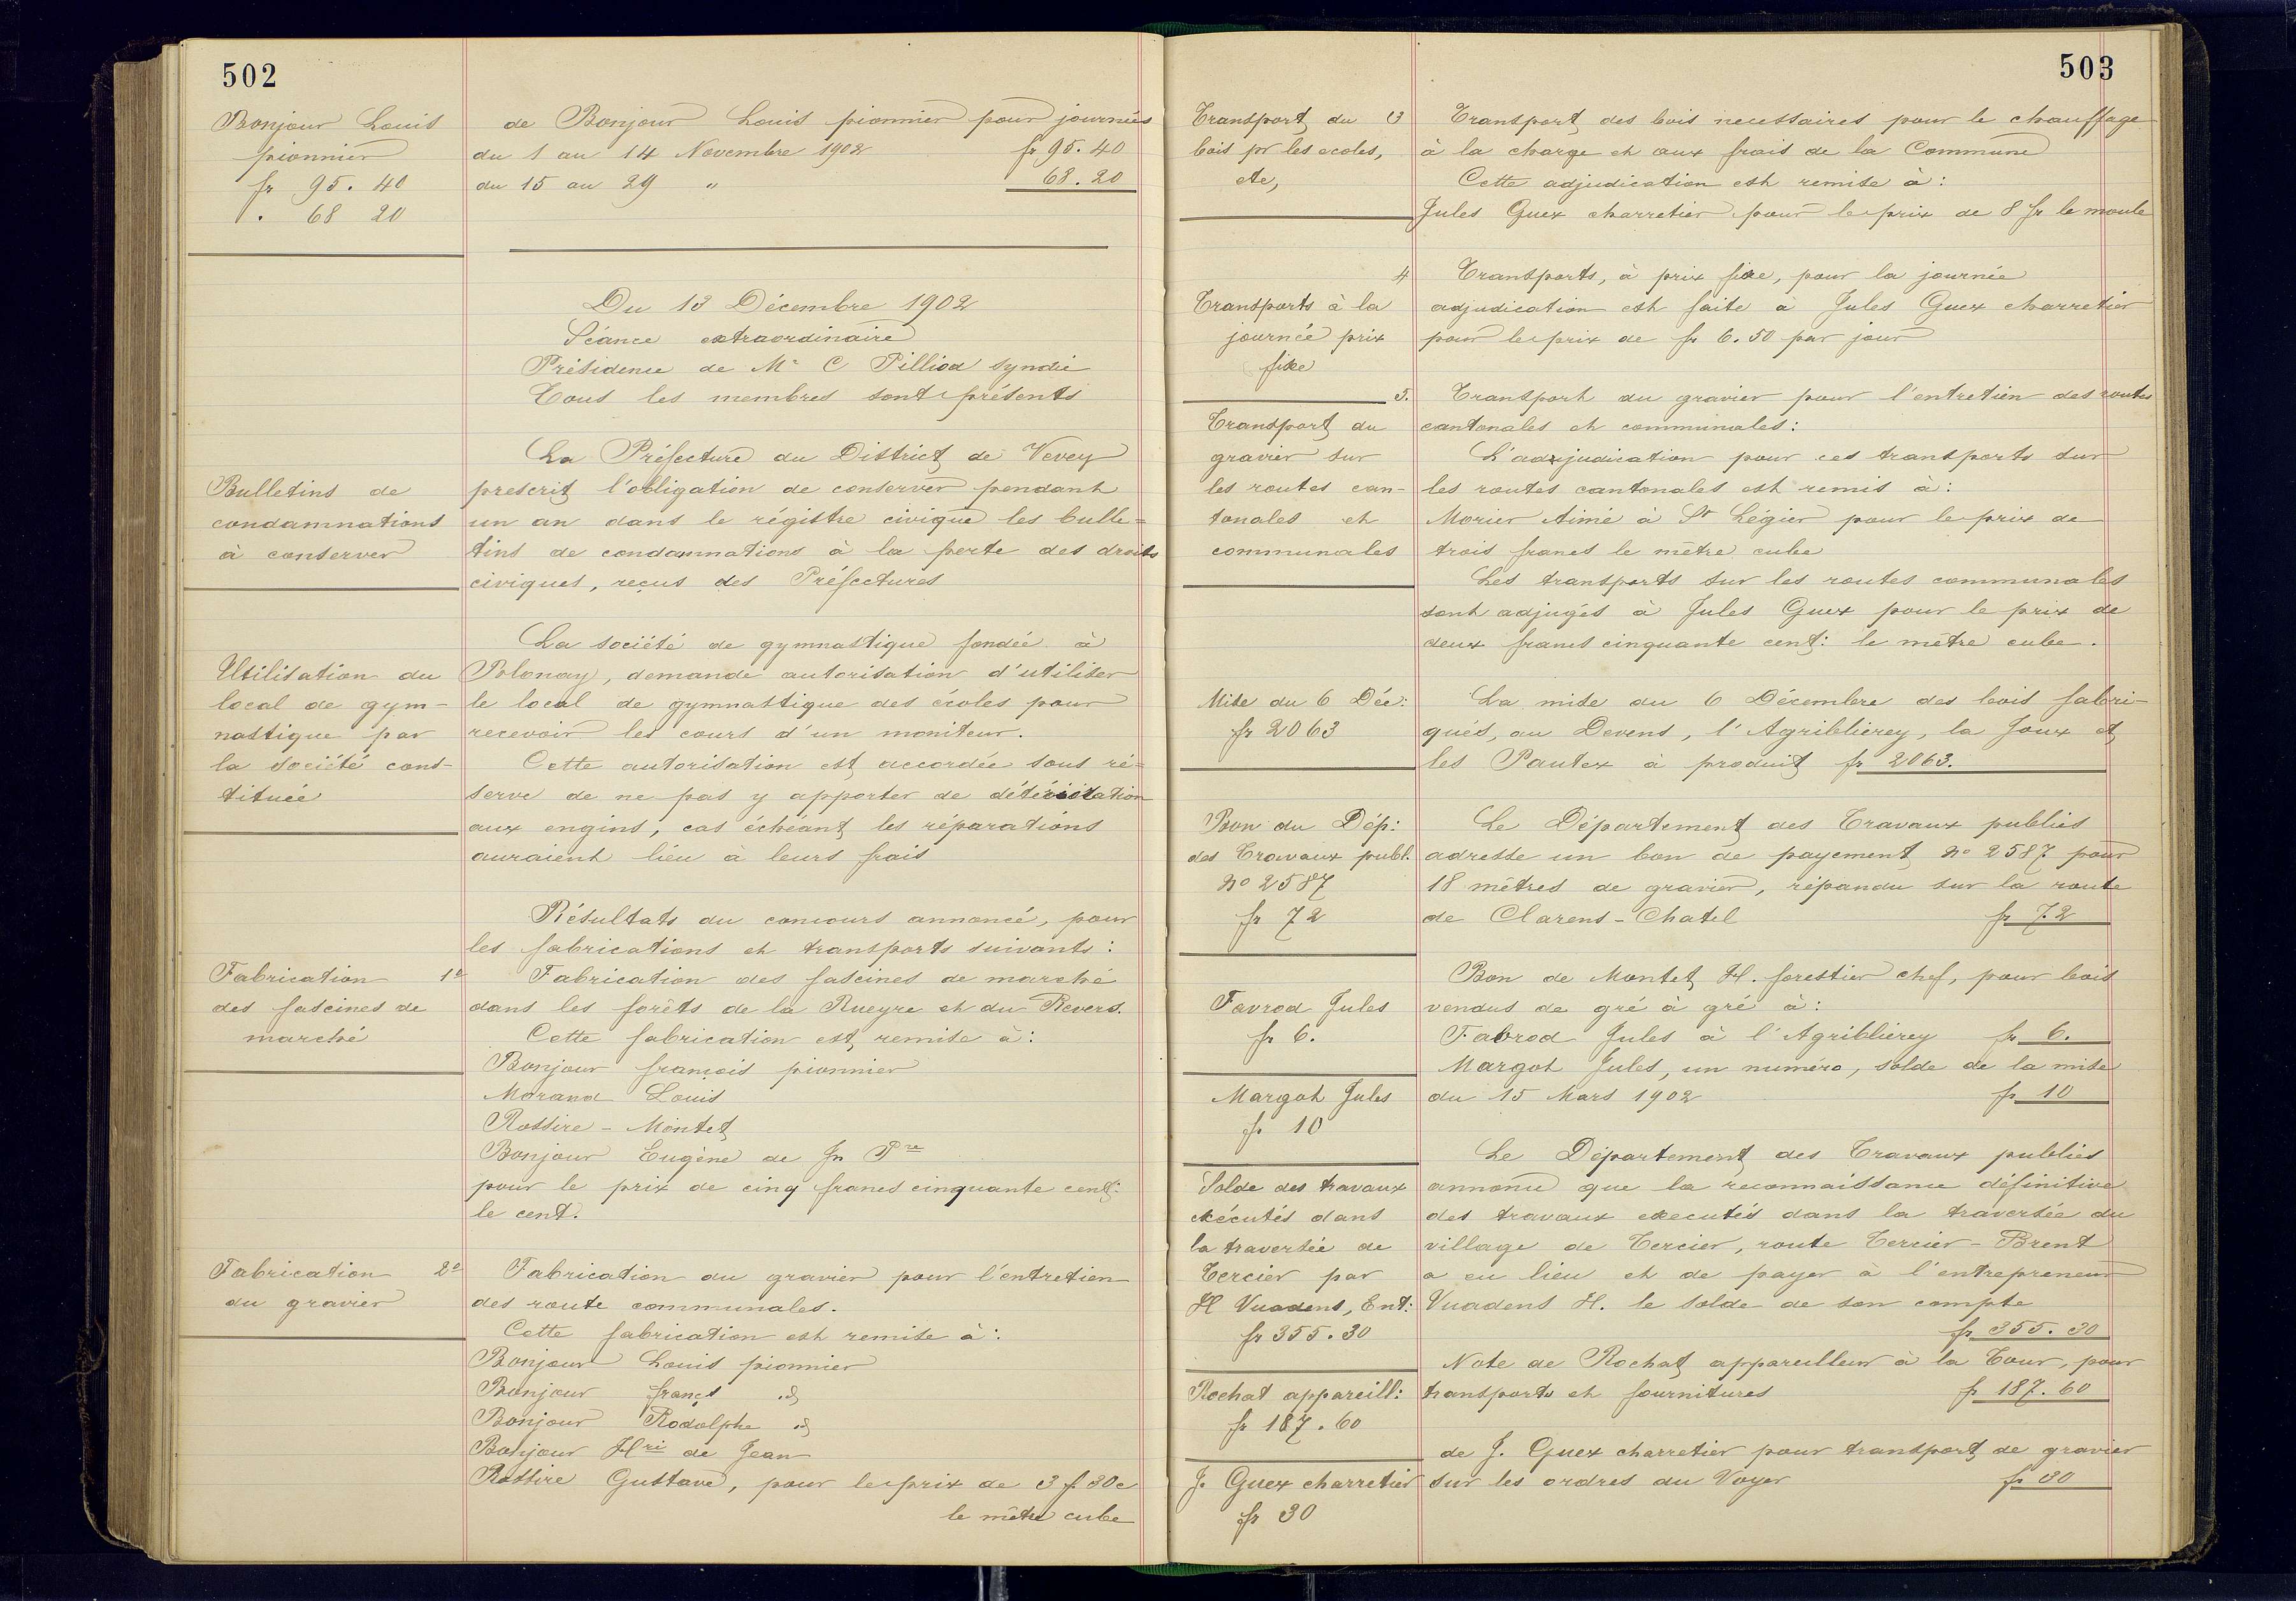 502
Bonjour Louis
pionnier
fr 95. 40
" 68 20
de Bonjour Louis pionnier pour journées
du 1 au 14 Novembre 1902 fr 95. 40
du 15 au 29 " 68. 20
Du 13 Décembre 1902
Séance extraordinaire
Présidence de Mr C Pilliod syndic
Tous les membres sont présents
Bulletins de
condamnations
à conserver
La Préfecture du District de Vevey
prescrit l'obligation de conserver pendant
un an dans le régistre civique les bulle=
tins de condamnations à la perte des droits
civiques, reçus des Préfectures
Utilisation du
local de gym-
nastique par
la société cons-
tituée
La société de gymnastique fondée à
Blonay, demande autorisation d'utiliser
le local de gymnastique des écoles pour
recevoir les cours d'un moniteur.
Cette autorisation est accordée sous ré=
serve de ne pas y apporter de détérioration
aux engins, cas échéant les réparations
auraient lieu à leurs frais
Résultats du concours annoncé, pour
les fabrications et transports suivants:
Fabrication 1o
des fascines de
marché
Fabrication des fascines de marché
dans les forêts de la Rueyre et du Revers.
Cette fabrication est remise à:
Bonjour françois pionnier
Morand Louis
Rossire - Montet
Bonjour Eugène de fs Pre
pour le prix de cinq francs cinquante cent:
le cent.
Fabrication 2o
du gravier
Fabrication du gravier pour l'entretien
des route communales.
Cette fabrication est remise à:
Bonjour Louis pionnier
Bonjour françs id
Bonjour Rodolphe id
Bonjour Hri de Jean
Rossire Gustave, pour le prix de 3 f. 30 c
le mètre cube
503
Transport du 3
bois pr les ecoles,
etc,
Transport des bois necessaires pour le chauffage
à la charge et aux frais de la Commune
Cette adjudication est remise à:
Jules Guex charretier pour le prix de 8 fr le moule
4
Transports à la
journée prix
fixe
Transports, à prix fixe, pour la journée
adjudication est faite à Jules Guex charretier
pour le prix de fr 6. 50 par jour
5.
Transport du
gravier sur
les routes can-
tonales et
communales
Transport du gravier pour l'entretien des routes
cantonales et communales:
L'adjudication pour ces transports sur
les routes cantonales est remis à:
Morier Aimé à St Légier pour le prix de
trois francs le mètre cube
Les transports sur les routes communales
sont adjugés à Jules Guex pour le prix de
deux francs cinquante cent: le mètre cube.
Mise du 6 Déc:
fr 2063
La mise du 6 Décembre des bois fabri-
qués, au Devens, l'Agriblierey, la Joux et
les Pautex à produit fr 2063.
Bon du Dép:
des Travaux publ.
no 2587
fr 72
Le Département des Travaux publics
adresse un bon de payement no 2587 pour
18 mètres de gravier, répandu sur la route
de Clarens-Chatel fr 72
Favrod Jules
fr 6.
Bon de Montet H. forestier chef, pour bois
vendus de gré à gré à:
Fabrod Jules à l'Agriblierey fr 6.
Margot Jules
fr 10
Margot Jules, un numéro, solde de la mise
du 15 Mars 1902 fr 10
Solde des travaux
exécutés dans
la traversée de
Tercier par
H Vuadens, Ent:
fr 355. 30
Le Département des Travaux publics
annonce que la reconnaissance définitive
des travaux executés dans la traversée du
village de Tercier, route Tercier-Brent
a eu lieu et de payer à l'entrepreneur
Vuadens H. le solde de son compte
fr 355. 30
Rochat appareill:
fr 187. 60
Note de Rochat appareilleur à la Tour, pour
transports et fournitures fr 187. 60
J. Guex charretier
fr 30
de J. Guex charretier pour transport de gravier
sur les ordres du Voyer fr 30